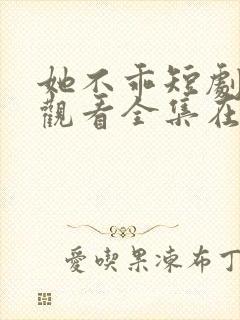 她不乖短劇
觀看全集在
愛喫果凍布丁